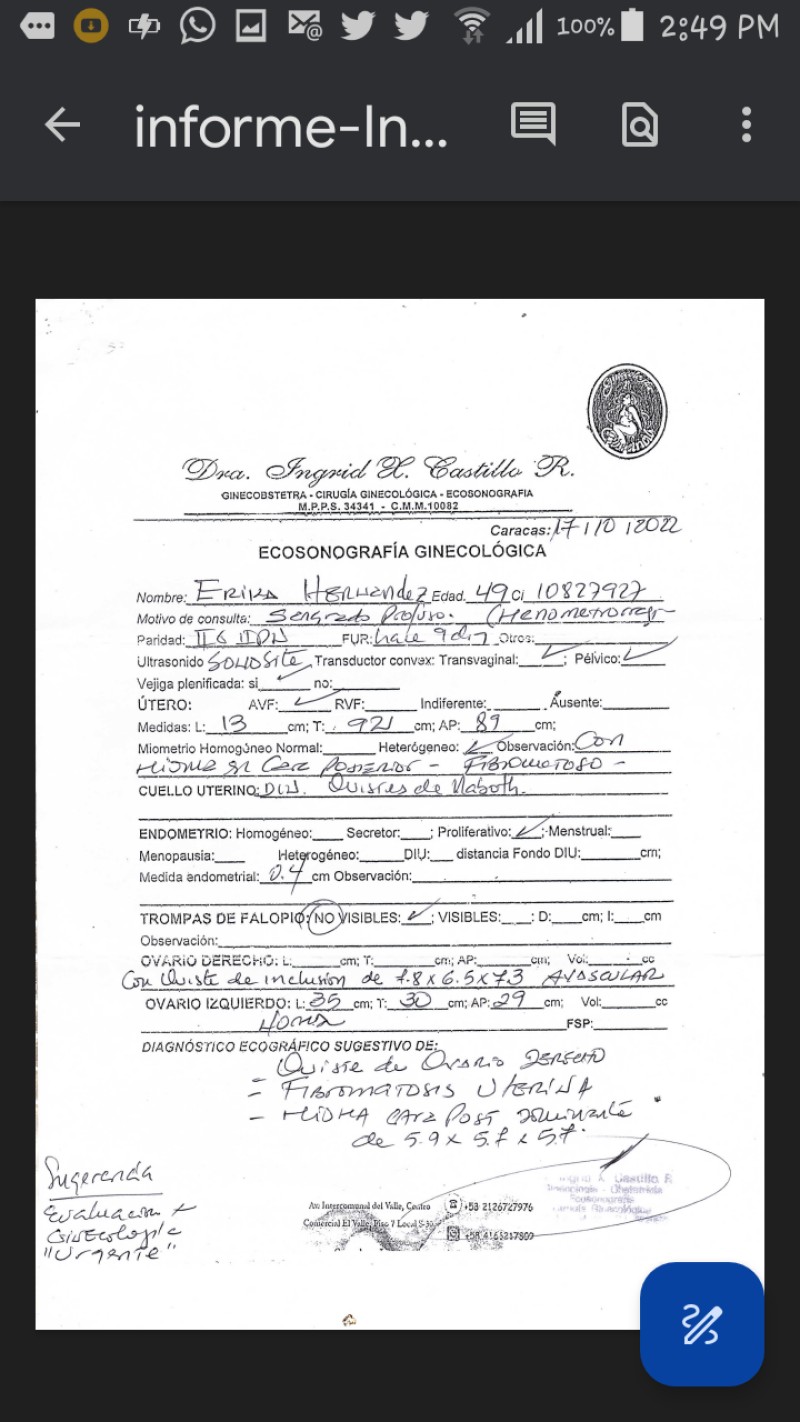 100% 2:49 PM
informe-In...
Dra. Ingrid X. Castillo R.
GINECOBSTETRA - CIRUGÍA GINECOLÓGICA - ECOSONOGRAFIA
M.P.P.S. 34341 - C.M.M.10082
Caracas: 17/10/2022
ECOSONOGRAFÍA GINECOLÓGICA
Nombre: Erika Hernandez Edad. 49 Ci 10827927
Motivo de consulta: Sangrado Profuso.
Paridad: FUR: hace 9 Otros:
Ultrasonido Transductor convex: Transvaginal: ✓; Pélvico: ✓
Vejiga plenificada: si ✓ no:
ÚTERO: AVF: ✓ RVF: Indiferente: Ausente:
Medidas: L: 13 cm; T: 921 cm; AP: 89 cm;
Miometrio Homogéneo Normal: Heterógeneo: ✓ Observación: Con
Mioma en Cara Posterior - Fibromatoso -
CUELLO UTERINO: Quistes de Naboth.
ENDOMETRIO: Homogéneo: Secretor: ; Proliferativo: ✓; Menstrual:
Menopausia: Heterógeneo: DIU: distancia Fondo DIU: cm;
Medida endometrial: 0.4 cm Observación:
TROMPAS DE FALOPIO: NO VISIBLES: ✓; VISIBLES: ; D: cm; I: cm
Observación:
OVARIO DERECHO: L: cm; T: cm; AP: cm; Vol: cc
Con Quiste de inclusión de 7.8 x 6.5 x 7.3 AVASCULAR
OVARIO IZQUIERDO: L: 35 cm; T: 30 cm; AP: 29 cm; Vol: cc
FSP:
DIAGNÓSTICO ECOGRÁFICO SUGESTIVO DE:
Quiste de Ovario DERECHO
- FIBROMATOSIS UTERINA
- MIOMA CARA POST Dominante
de 5.9 x 5.7 x 5.7
Sugerencia
Evaluacion x
Ginecologia
"Urgente"
Av. Intercomunal del Valle, Centro
Comercial El Valle, Piso 7 Local S-30
+58 2126727976
+58 4165217809